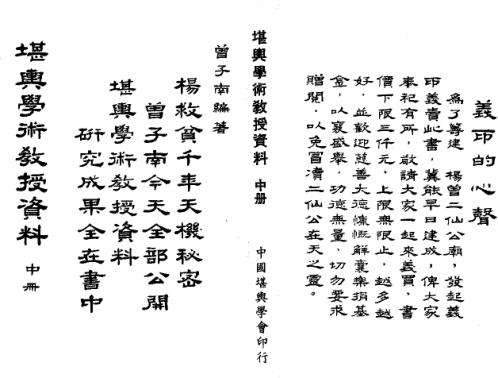 義印的心聲
為了籌建 楊曾二仙公廟，發起義
印義賣此書，冀能早日建成，俾大家
奉祀有所，敬請大家一起來義買，書
價下限三仟元，上限無限止，越多越
好，並歡迎慈善大德慷慨解囊樂捐基
金，以襄盛舉，功德無量，切勿要求
贈閱，以免冒瀆二仙公在天之靈。
堪輿學術教授資料 中冊
中國堪輿學會印行
曾子南編著
楊救貧千年天機秘密
曾子南今天全部公開
堪輿學術教授資料
研究成果全在書中
堪輿學術教授資料 中冊